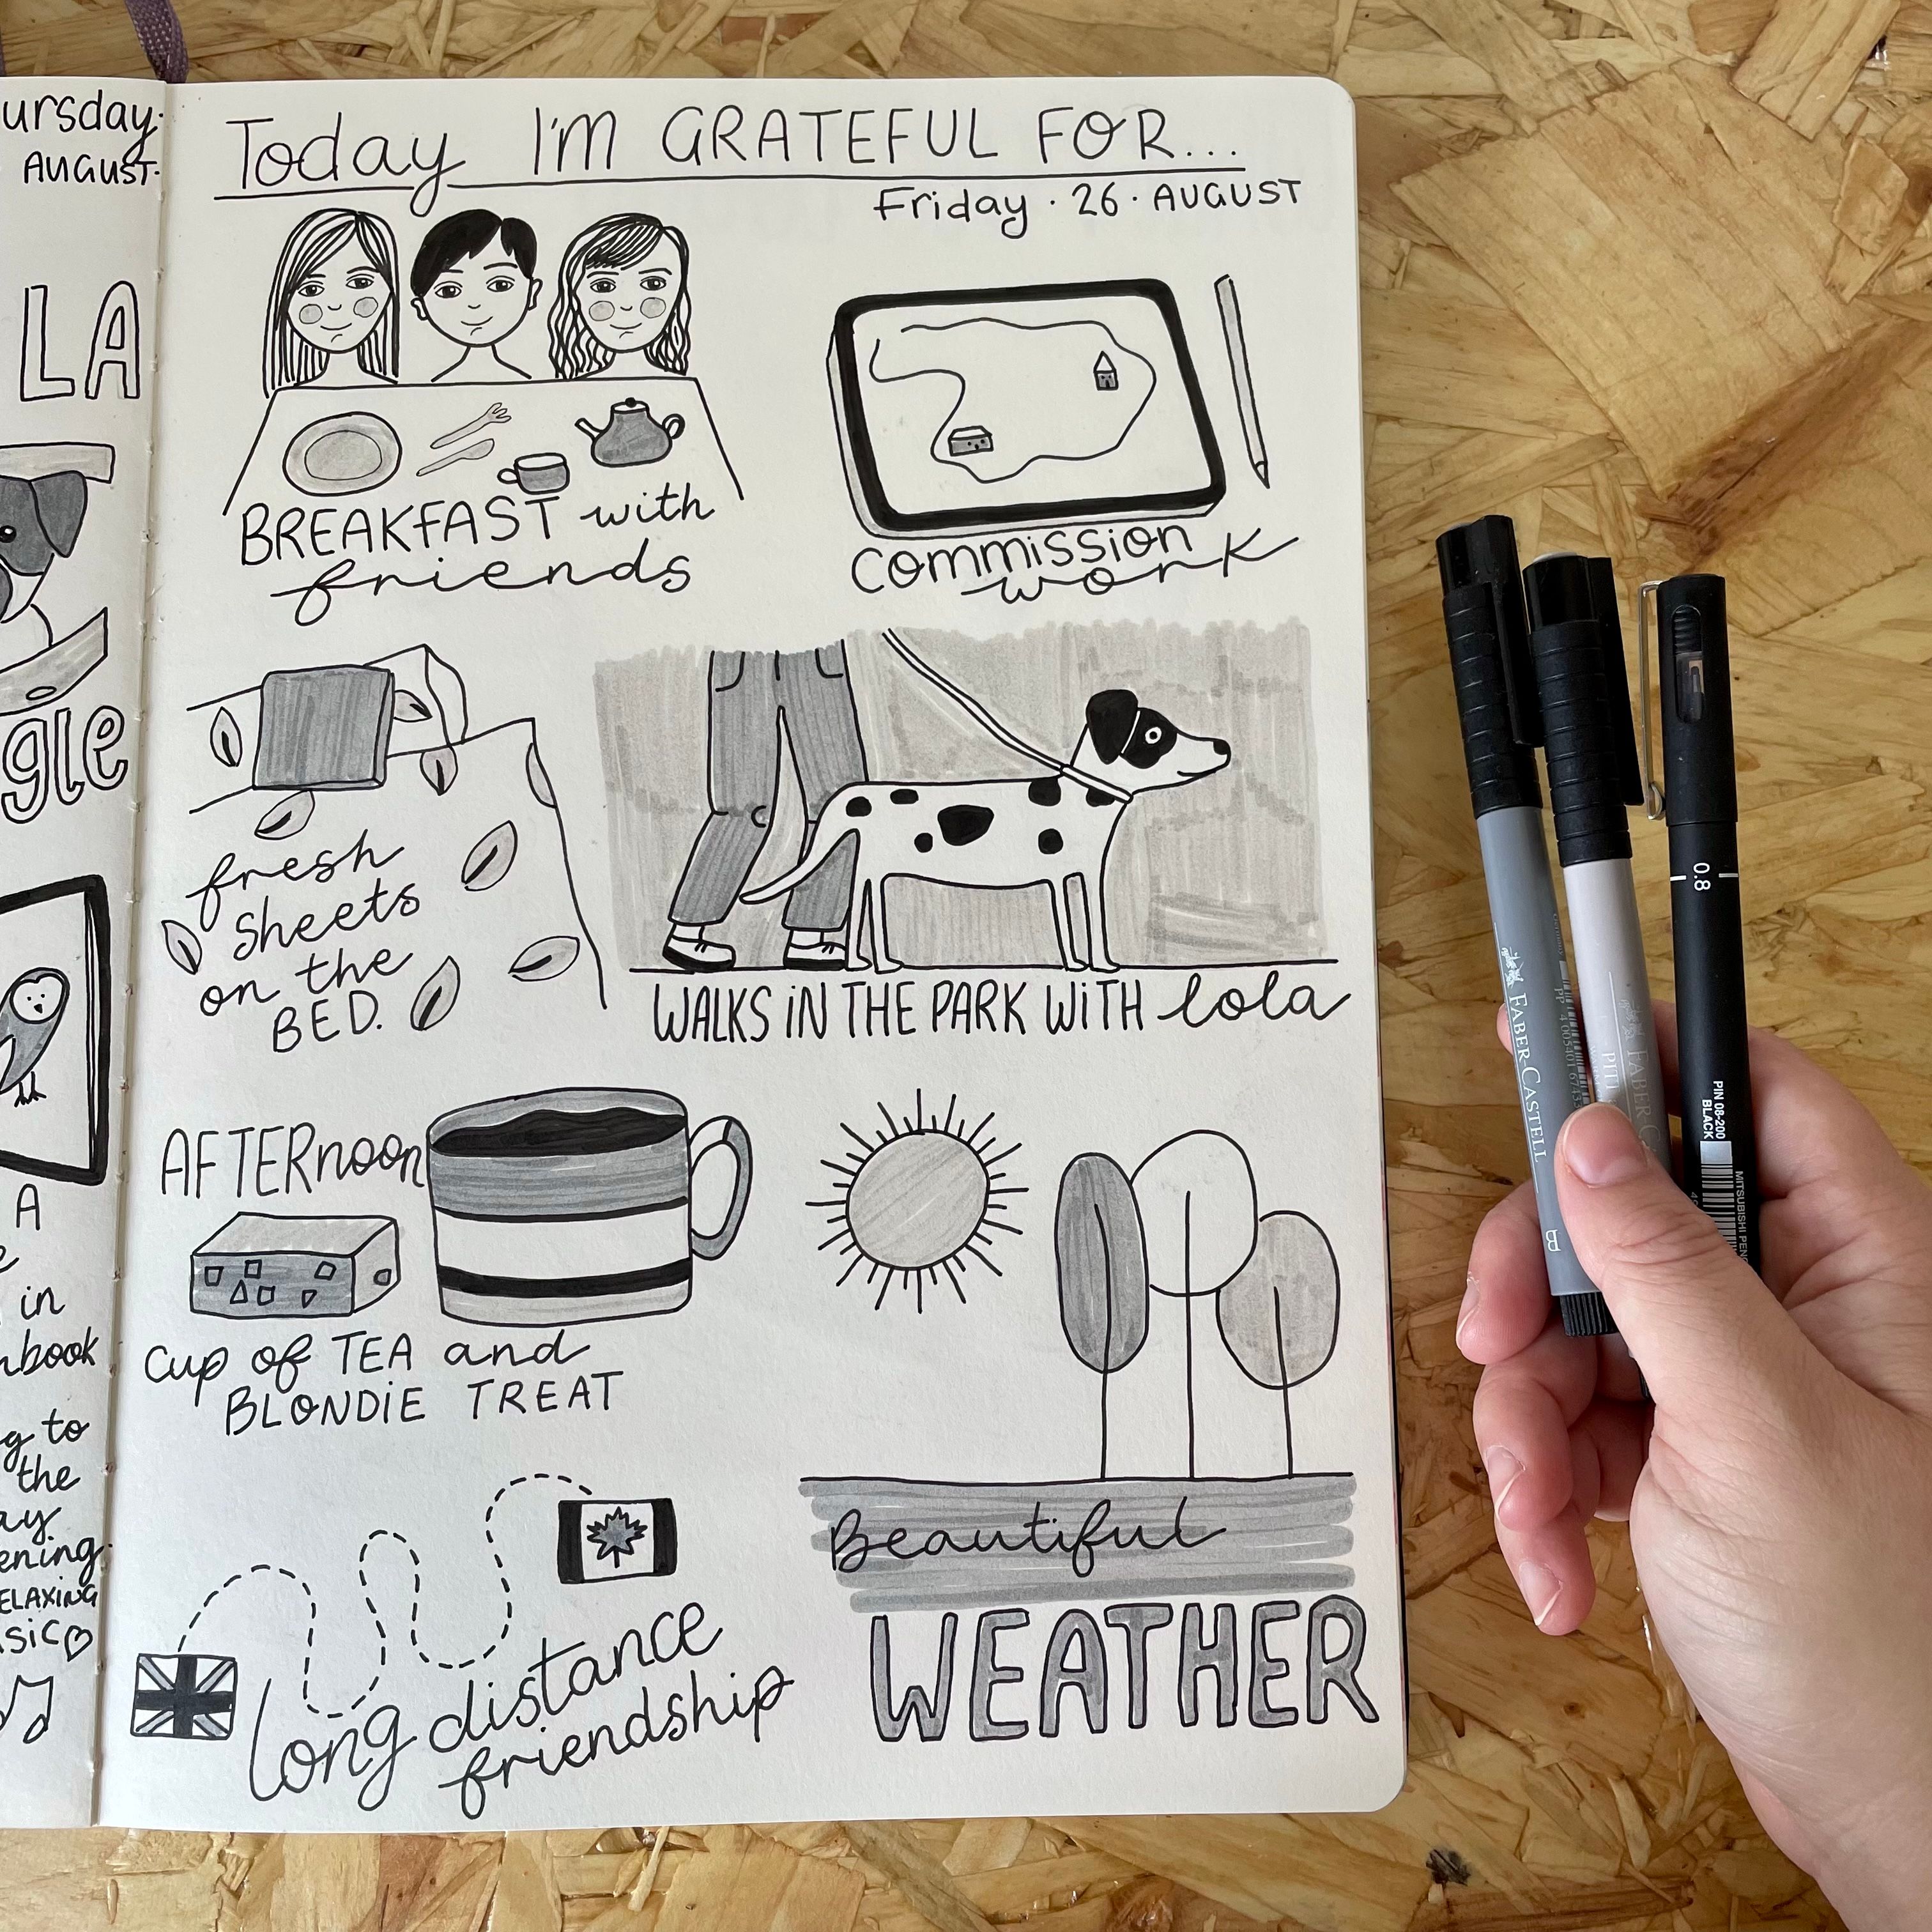 ursday·
AUGUST·
LA
gle
A
in
book
g to
the
ay
ening·
ELAXING
SiC
Today I'M GRATEFUL FOR...
Friday · 26 · AUGUST
BREAKFAST with
friends
Commission
work
fresh
sheets
on the
BED.
WALKS iN THE PARK WiTH lola
AFTERnoon
Cup of TEA and
BLONDiE TREAT
Beautiful
WEATHER
long distance
friendship
FABER-CASTELL
B
FABER-C
PITT
0.8
PIN 08-200
BLACK
MITSUBISHI PENC